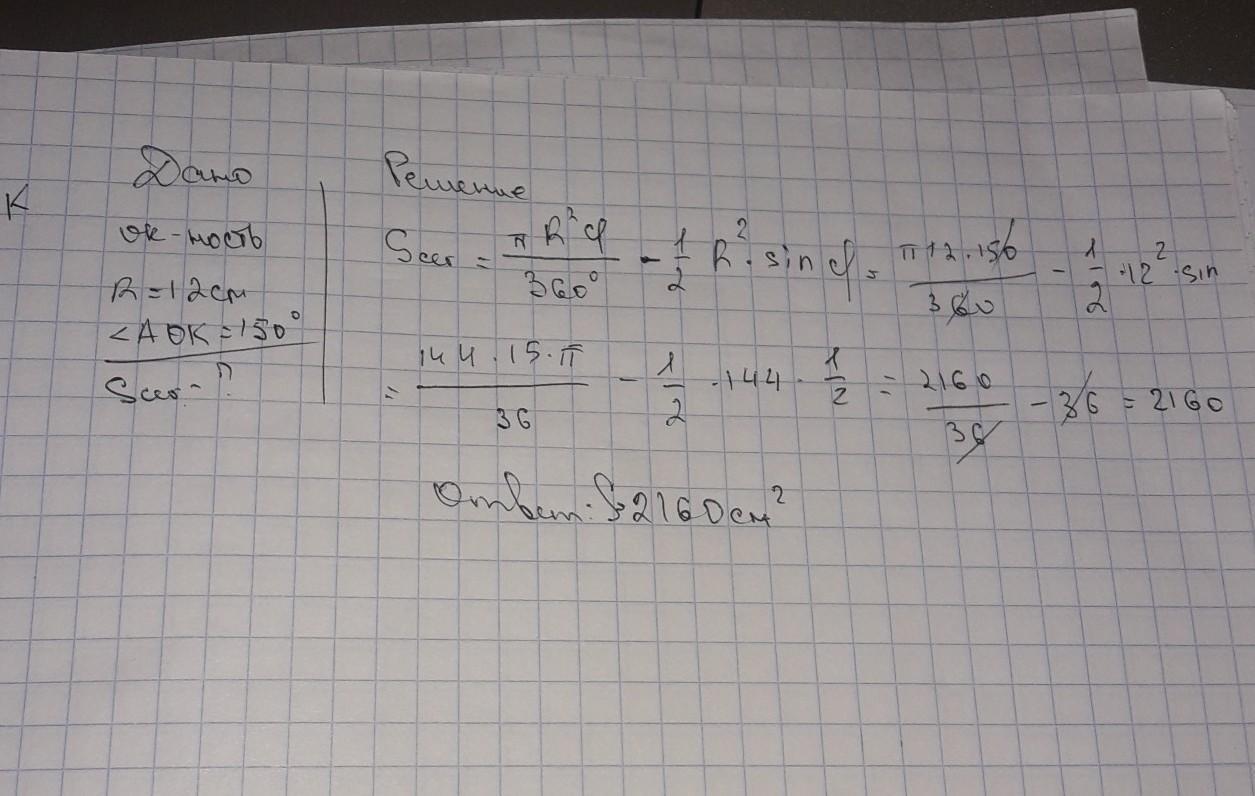 Дано
Решение
K
ок-ность
R = 12 см
<AOK = 150°
Sсег - ?
Sсег = πR²φ/360° - 1/2 R² · sin φ = π12·150/360 - 1/2 · 12² · sin
= 144·15·π/36 - 1/2 · 144 · 1/2 = 2160/36 - 36 = 2160
Ответ: S=2160 см²